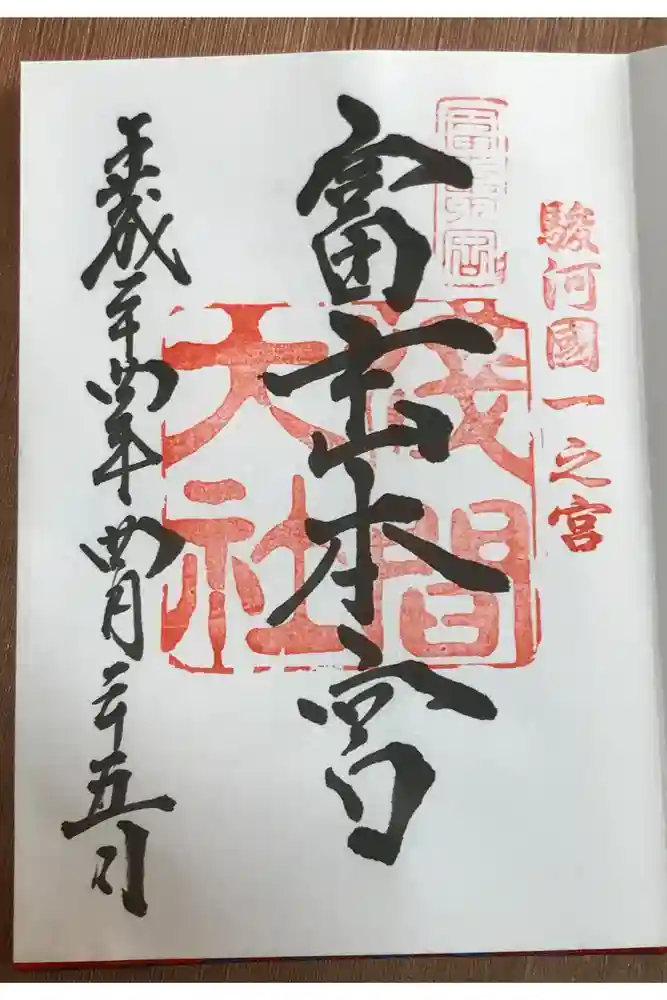 駿河國一之宮
富士本宮
淺間大社
平成二十四年四月二十五日